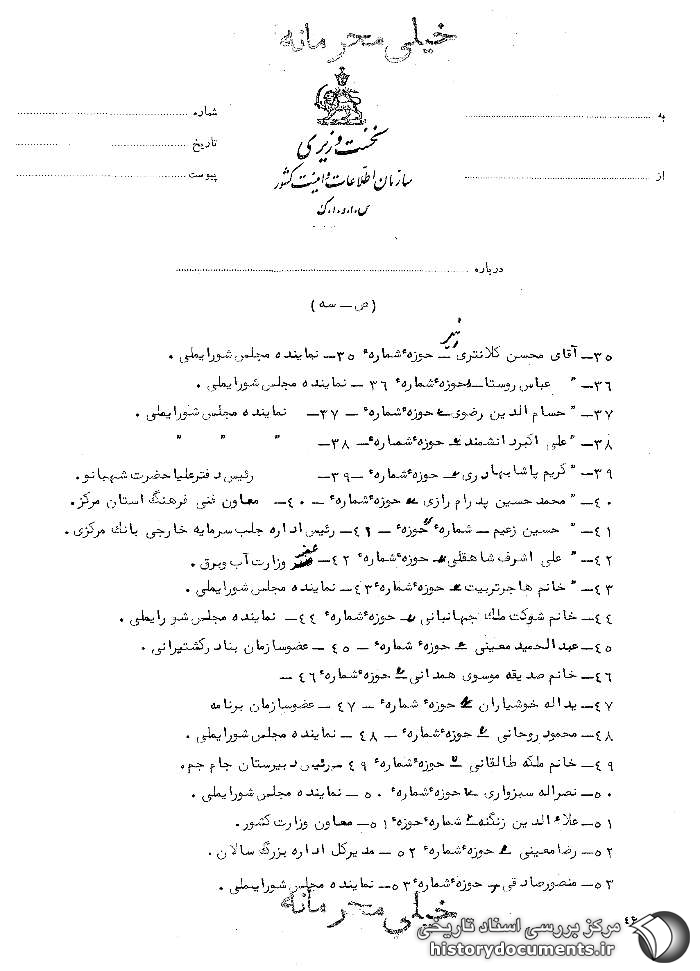 خیلی محرمانه
نخست وزیری
سازمان اطلاعات و امنیت کشور
س.ا.و.ا.ک
به
از
شماره
تاریخ
پیوست
درباره
(ص - سه)
۳۵- آقای محسن کلانتری حوزه شماره ۳۵- نماینده مجلس شورایملی .
۳۶- " عباس روستا حوزه شماره ۳۶ - نماینده مجلس شورایملی .
۳۷- " حسام الدین رضوی حوزه شماره - ۳۷- نماینده مجلس شورایملی .
۳۸- " علی اکبر دانشمند حوزه شماره - ۳۸- " " "
۳۹- " کریم پاشابهادری حوزه شماره - ۳۹- رئیس دفتر علیاحضرت شهبانو .
۴۰- " محمد حسین پدرام رازی حوزه شماره - ۴۰- معاون فنی فرهنگ استان مرکز .
۴۱- " حسین زعیم - شماره حوزه - ۴۱- رئیس اداره جلب سرمایه خارجی بانک مرکزی .
۴۲- " علی اشرف شاهقلی حوزه شماره ۴۲- عضو وزارت آب وبرق .
۴۳- " خانم هاجر تربیت حوزه شماره ۴۳- نماینده مجلس شورایملی .
۴۴- خانم شوکت ملک جهانبانی حوزه شماره ۴۴- نماینده مجلس شورایملی .
۴۵- عبدالحمید معینی حوزه شماره - ۴۵ - عضو سازمان بنادر کشتیرانی .
۴۶- خانم صدیقه موسوی همدانی حوزه شماره ۴۶ -
۴۷- یداله خوشیاران حوزه شماره - ۴۷ - عضو سازمان برنامه
۴۸- محمود روحانی حوزه شماره - ۴۸ - نماینده مجلس شورایملی .
۴۹- خانم ملکه طالقانی حوزه شماره ۴۹ - رئیس دبیرستان جام جم .
۵۰- نصراله سبزواری حوزه شماره ۵۰ - نماینده مجلس شورایملی .
۵۱- علاء الدین زنگنه شماره حوزه ۵۱- معاون وزارت کشور .
۵۲- رضا معینی حوزه شماره ۵۲ - مدیرکل اداره بزرگ سالان .
۵۳- منصور صادقی حوزه شماره ۵۳- نماینده مجلس شورایملی .
خیلی محرمانه
مرکز بررسی اسناد تاریخی
historydocuments.ir